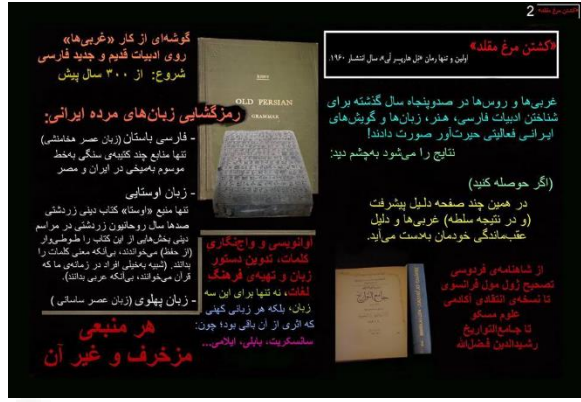 «کشتن مرغ مقلد» 2
«کشتن مرغ مقلد»
اولین و تنها رمان «نل هارپر لی»، سال انتشار ۱۹۶۰.
غربی‌ها و روس‌ها در صدوپنجاه سال گذشته برای
شناختن ادبیات فارسی، هنر، زبان‌ها و گویش‌های
ایرانی فعالیتی حیرت‌آور صورت دادند!
نتایج را می‌شود به‌چشم دید:
(اگر حوصله کنید)
در همین چند صفحه دلیل پیشرفت
(و در نتیجه سلطه) غربی‌ها و دلیل
عقب‌ماندگی خودمان به‌دست می‌آید.
از شاهنامه‌ی فردوسی
تصحیح ژول مول فرانسوی
تا نسخه‌ی انتقادی آکادمی
علوم مسکو
تا جامع‌التواریخ
رشیدالدین فضل‌الله
گوشه‌ای از کار «غربی‌ها»
روی ادبیات قدیم و جدید فارسی
شروع: از ۳۰۰ سال پیش
KENT
OLD PERSIAN
GRAMMAR
رمزگشایی زبان‌های مرده ایرانی:
- فارسی باستان (زبان عصر هخامنشی)
تنها منابع چند کتیبه‌ی سنگی به‌خط
موسوم به‌میخی در ایران و مصر
- زبان اوستایی
تنها منبع «اوستا» کتاب دینی زردشتی
صدها سال روحانیون زردشتی در مراسم
دینی بخش‌هایی از این کتاب را طوطی‌وار
(از حفظ) می‌خواندند، بی‌آنکه معنی کلمات را
بدانند. (شبیه به‌خیلی افراد در زمانه‌ی ما که
قرآن می‌خوانند، بی‌آنکه عربی بدانند).
- زبان پهلوی (زبان عصر ساسانی)
هر منبعی
مزخرف و غیر آن
آوانویسی و واج‌نگاری
کلمات، تدوین دستور
زبان و تهیه‌ی فرهنگ
لغات، نه تنها برای این سه
زبان، بلکه هر زبانی کهنی
که اثری از آن باقی بود؛ چون:
سانسکریت، بابلی، ایلامی...
جامع التواریخ